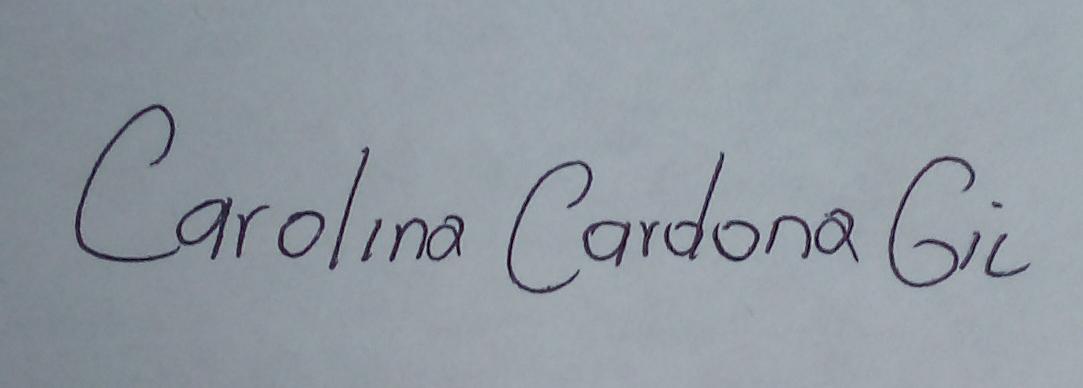 Carolina Cardona Gil